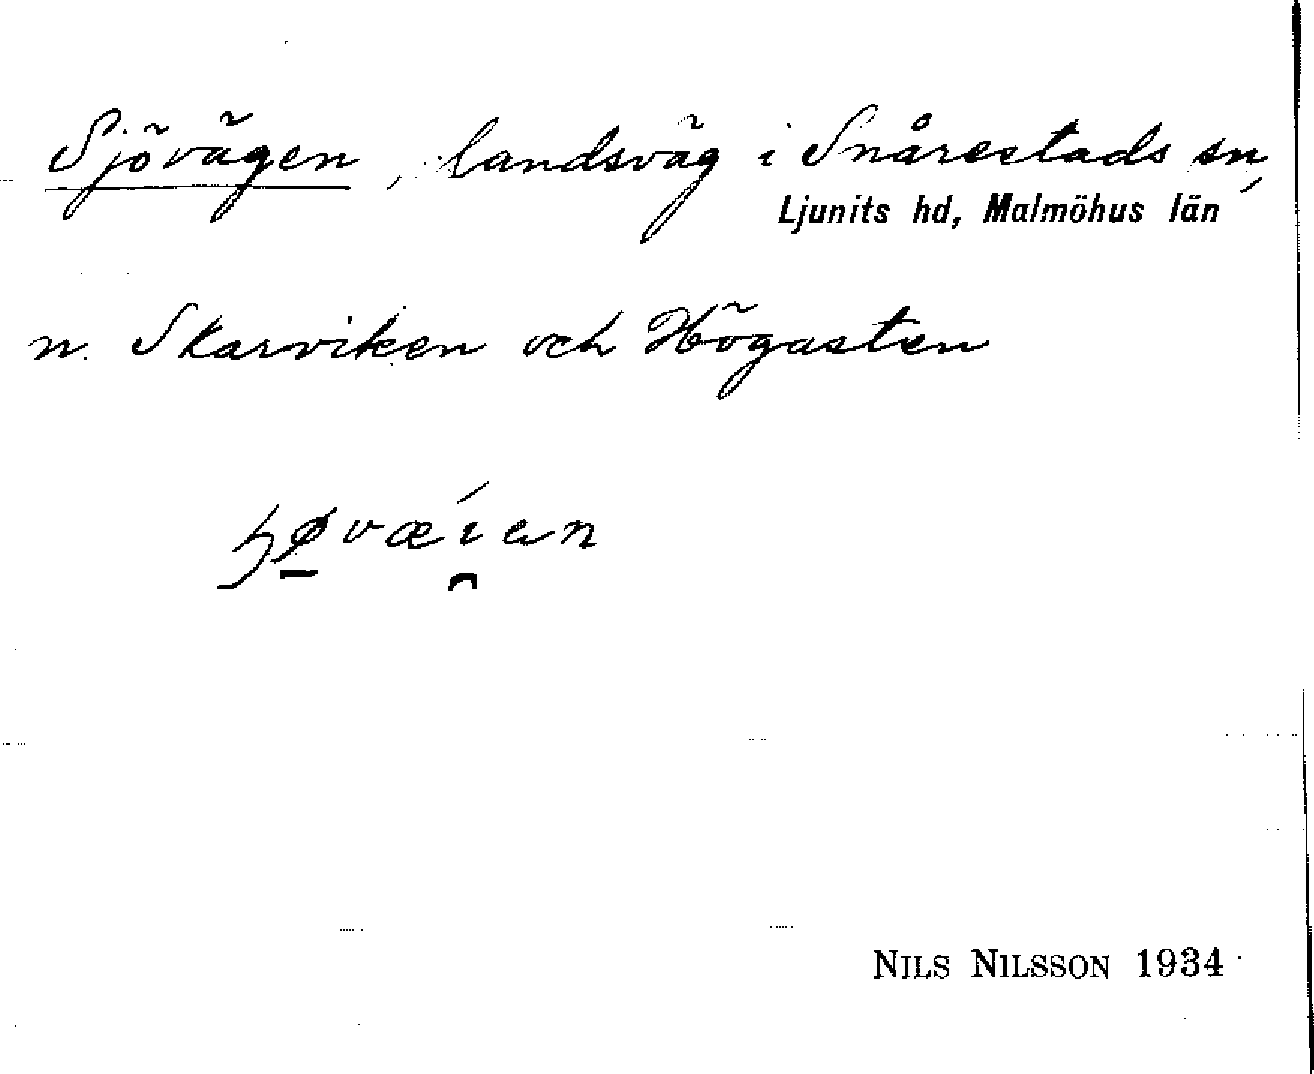 Sjövägen, landsväg i Snårestads sn,
Ljunits hd, Malmöhus län
n. Skarviken och Högasten
NILS NILSSON 1934